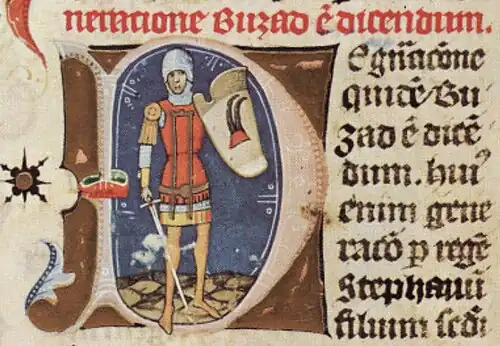 neracione Buzad ē dicendum.
E gn̄acōne
quidē Bu
zad ē dicē
dum. hui᾽
enim gene
racō p regē
Stephanū
filium scdi